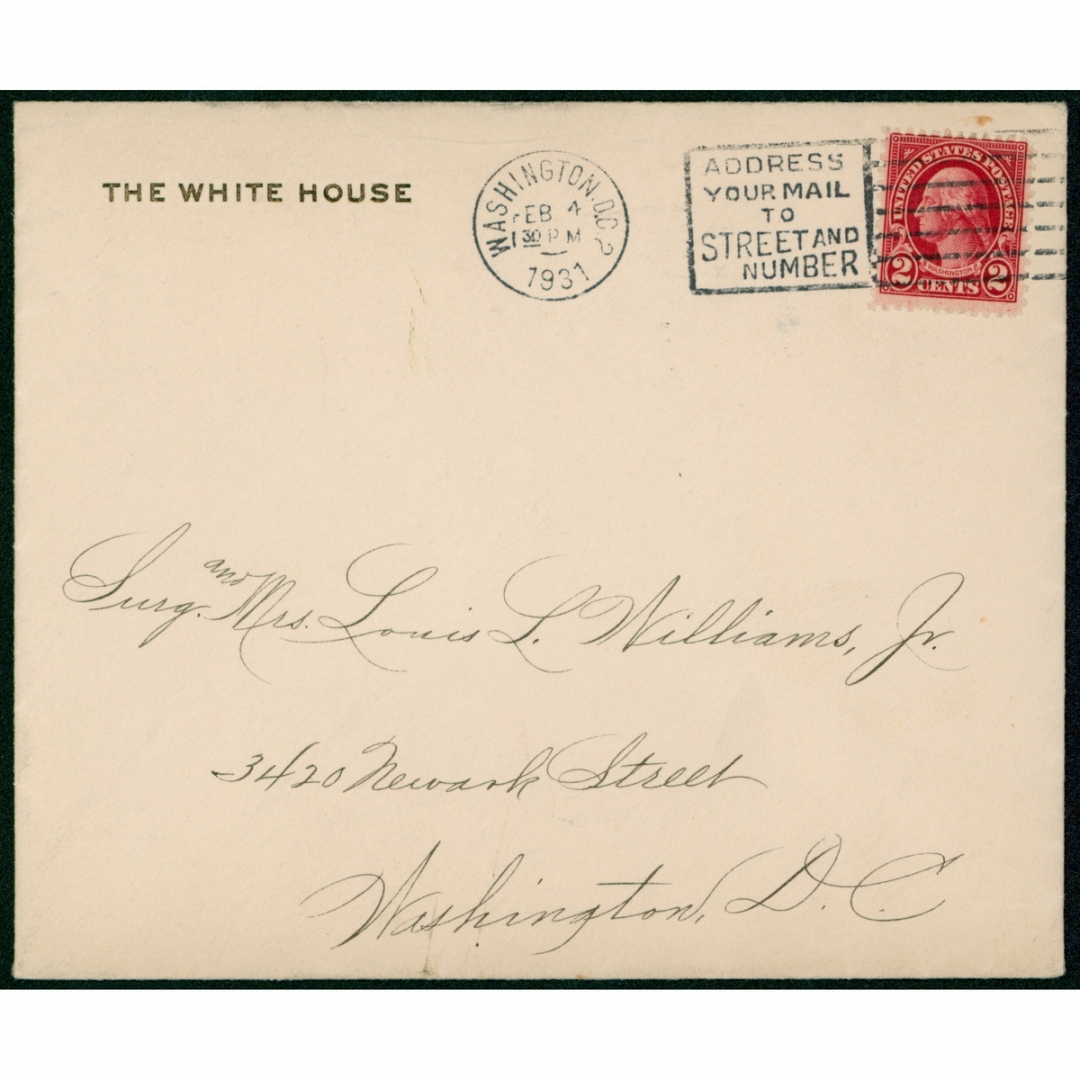 THE WHITE HOUSE
WASHINGTON, D.C. 2
FEB 4
1 30 P M
1931
ADDRESS
YOUR MAIL
TO
STREET AND
NUMBER
UNITED STATES POSTAGE
WASHINGTON
2 CENTS 2
Surg. and Mrs. Louis L. Williams, Jr.
3420 Newark Street
Washington, D. C.